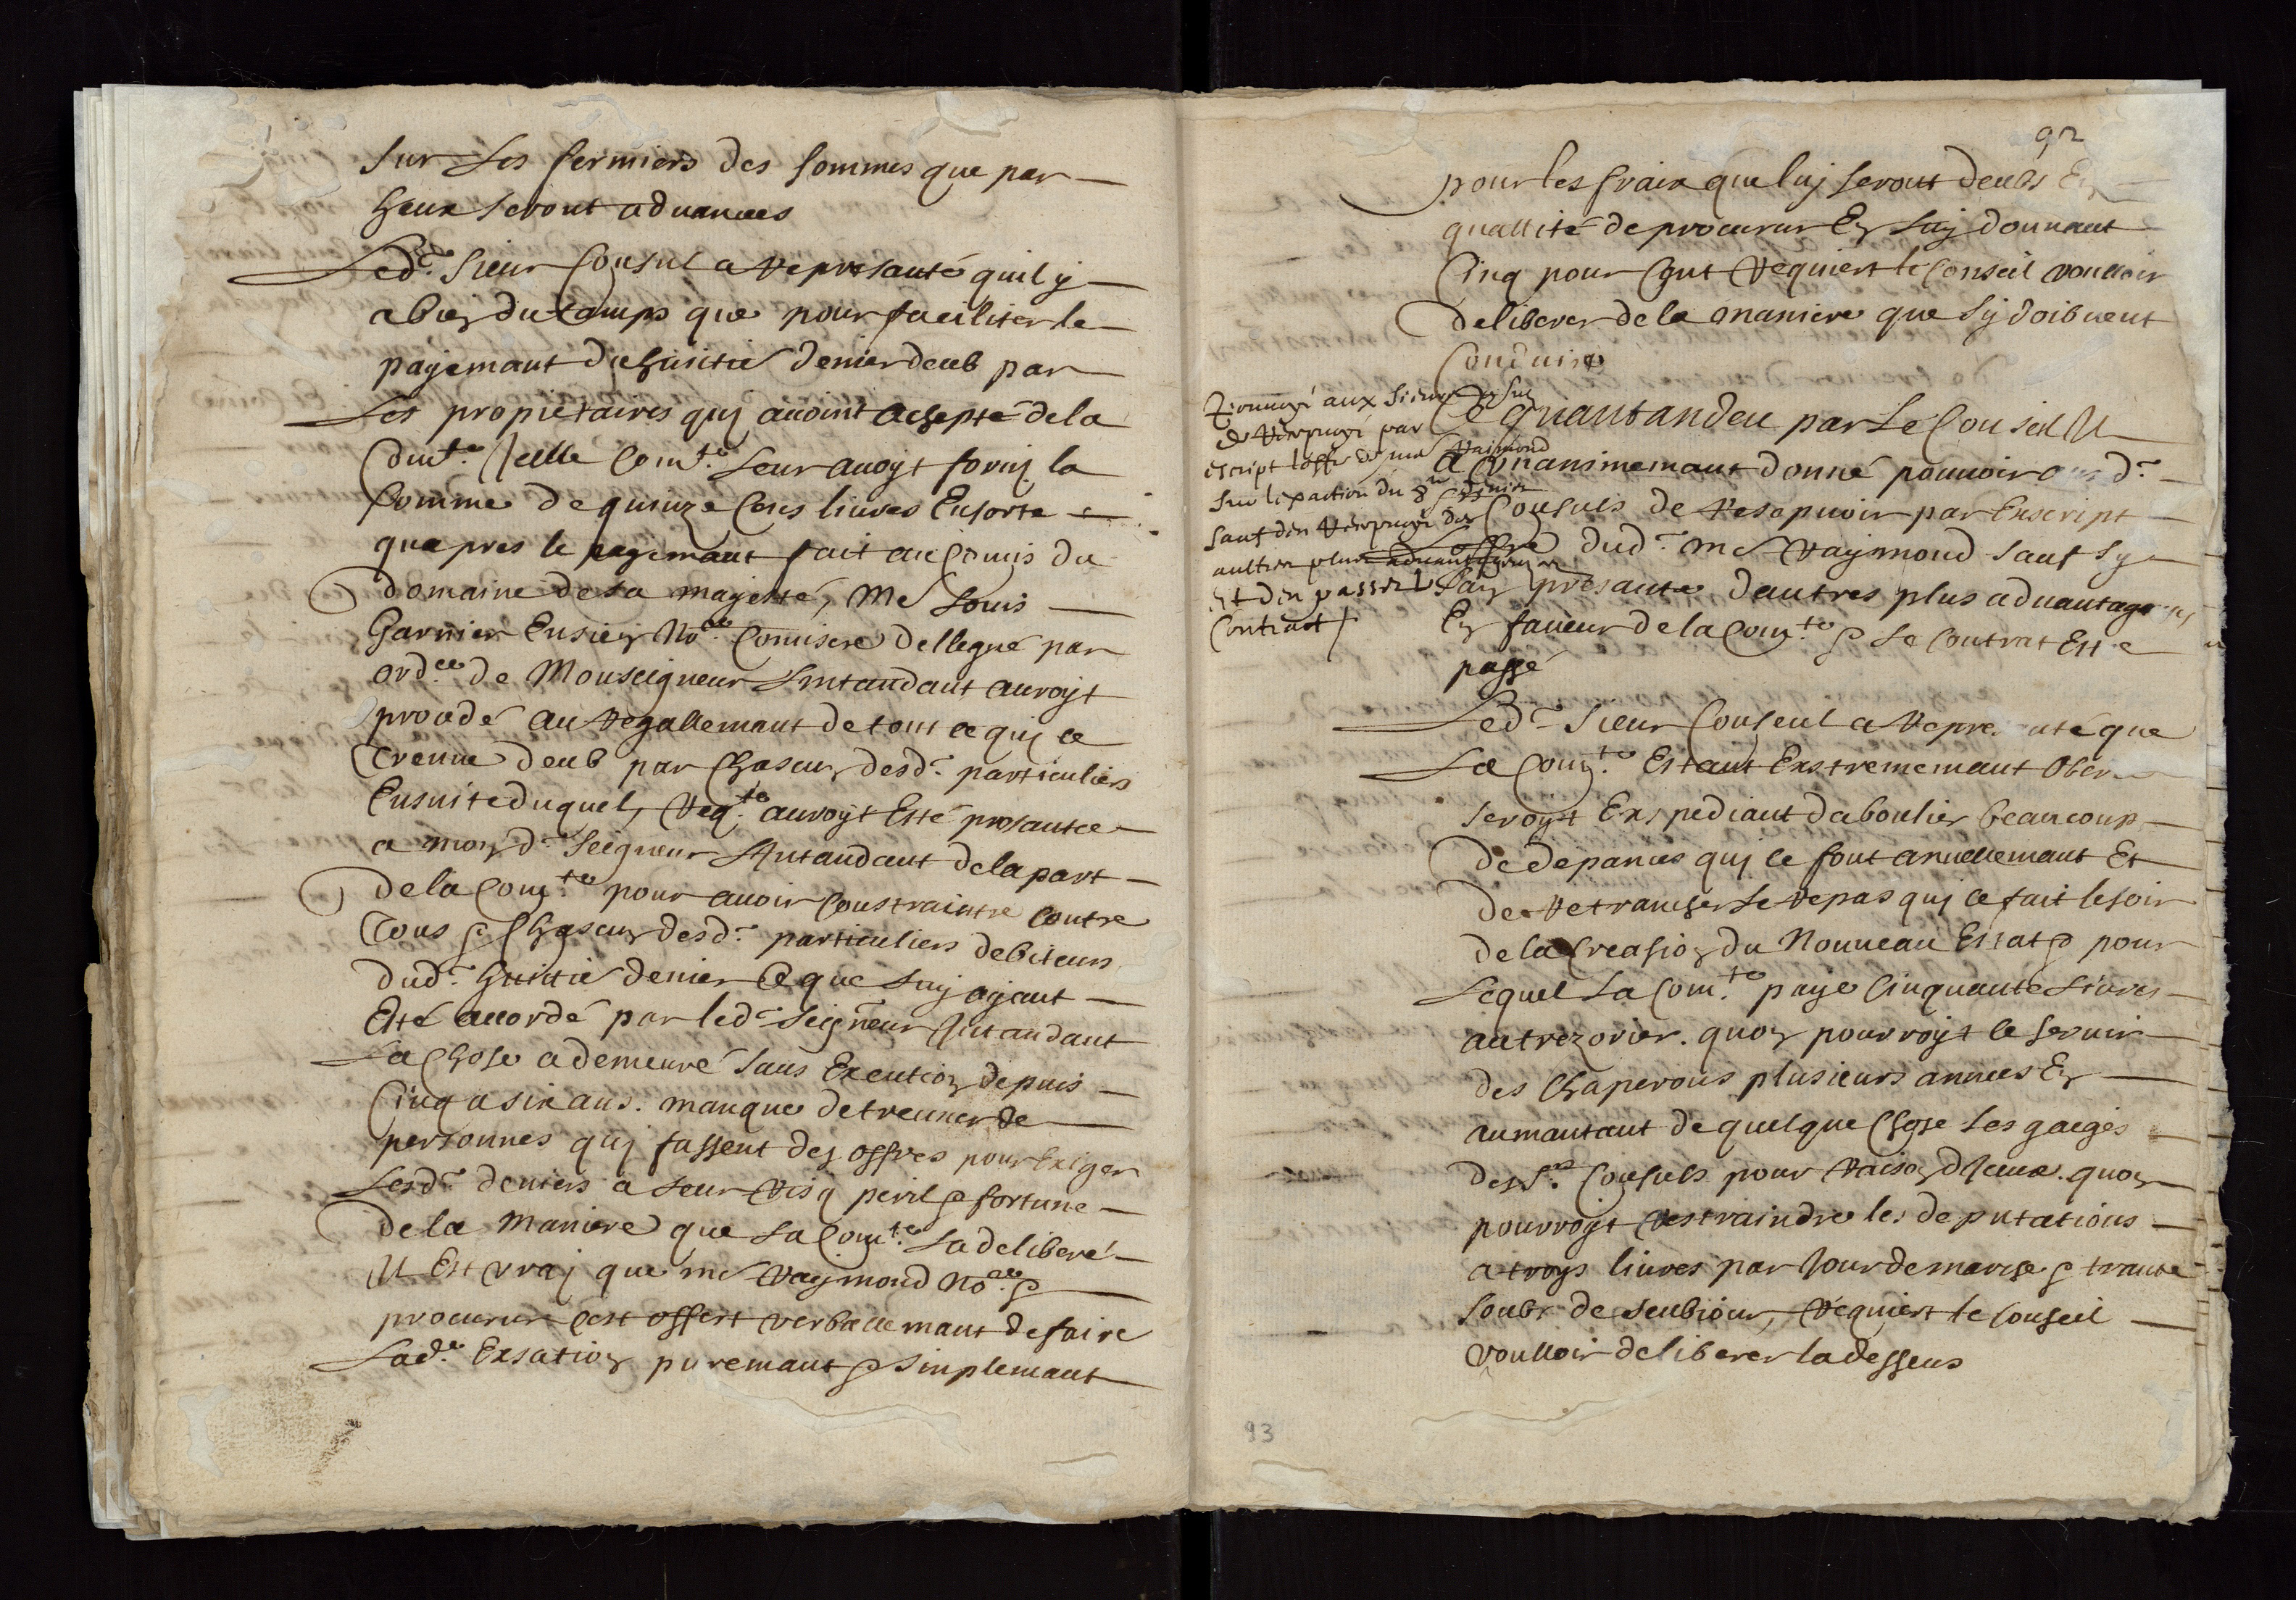 sur les fermiers des sommes que par
heux seront advancees
Led.t sieur Consul a represanté quil y
a bien du tamps que pour faciliter le
payemant du huitie denier deub par
Les proprietaires quy avoint acsepté de la
Com.te Jcelle Com.te Leur avoyt forny la
somme de quinze Cens livres En sorte
quapres le payemant fait au Comis du
domaine de sa majesté, Me Louis
Garnier Ensien No.re Comisere dellegué par
ord.ce de Monseigneur Lintandant auroyt
procedé au regallemant de tout ce quy ce
treuve deub par Chascun desd.t particuliers
Ensuite duquel, req.te auroyt Esté presantée
a mond.t seigneur Lintandant de la part
de la Com.te pour avoir Constrainte contre
Tous & Chascun desd.t particuliers debiteurs
dud.t huitie denier Ce que luy ayant
Esté accordé par led.t seigneur Jntandant
La chose a demeuré sans Execution depuis
Cinq a six ans. manque de treuver de
personnes quy fassent des offres pour Exiger
Lesd.t deniers a leur risq peril & fortune
de la maniere que la Com.te la deliberé
Il Est vray que me Raymond No.re &
procureur cest offert verballemant de faire
Lad.te Exsation puremant & simplemant
92
pour les fraix que luy seront deubs En
quallité de procureur En luy donnant
Cinq pour Cent requiert le Conseil voulloir
deliberer de la maniere que sy doibvent
Conduire
Ce quantandeu par Le Conseil Il
a Unanimemant donné pouvoir aud.t
Consuls de resepvoir par Enscript
Loffre dud.t me Raymond sauf sy
Lan presante dautres plus advantageuses
En faveur de la Com.te & Le Contrat Estre
passé
renvoyé aux sieurs Consuls
de recepvoir par
escript loffre de me Raimond
sur lexaction du 8.e denier
sauf den recepvoir des
aultres plus advantageuses
et den passer le
Contract
Led.t sieur Conseul a represanté que
La Com.te Estant Exstrememant Oberée
seroyt Exspediant daboulir beaucoup
de depances quy ce font anuellemant Et
de retrancher le repas quy ce fait le soir
de la Creasion du Nouveau Estat & pour
Lequel la Com.te paye Cinquante Livres
au trezorier. quon pourroyt ce servir
des Chaperons plusieurs annees En
aumantant de quelque chose les gaiges
des S.rs Consuls pour raison diceux. quon
pourroyt restraindre les deputations
a troys livres par Jour de marche & trante
soubz de seubiour, requiert le Conseil
voulloir deliberer la dessus
93